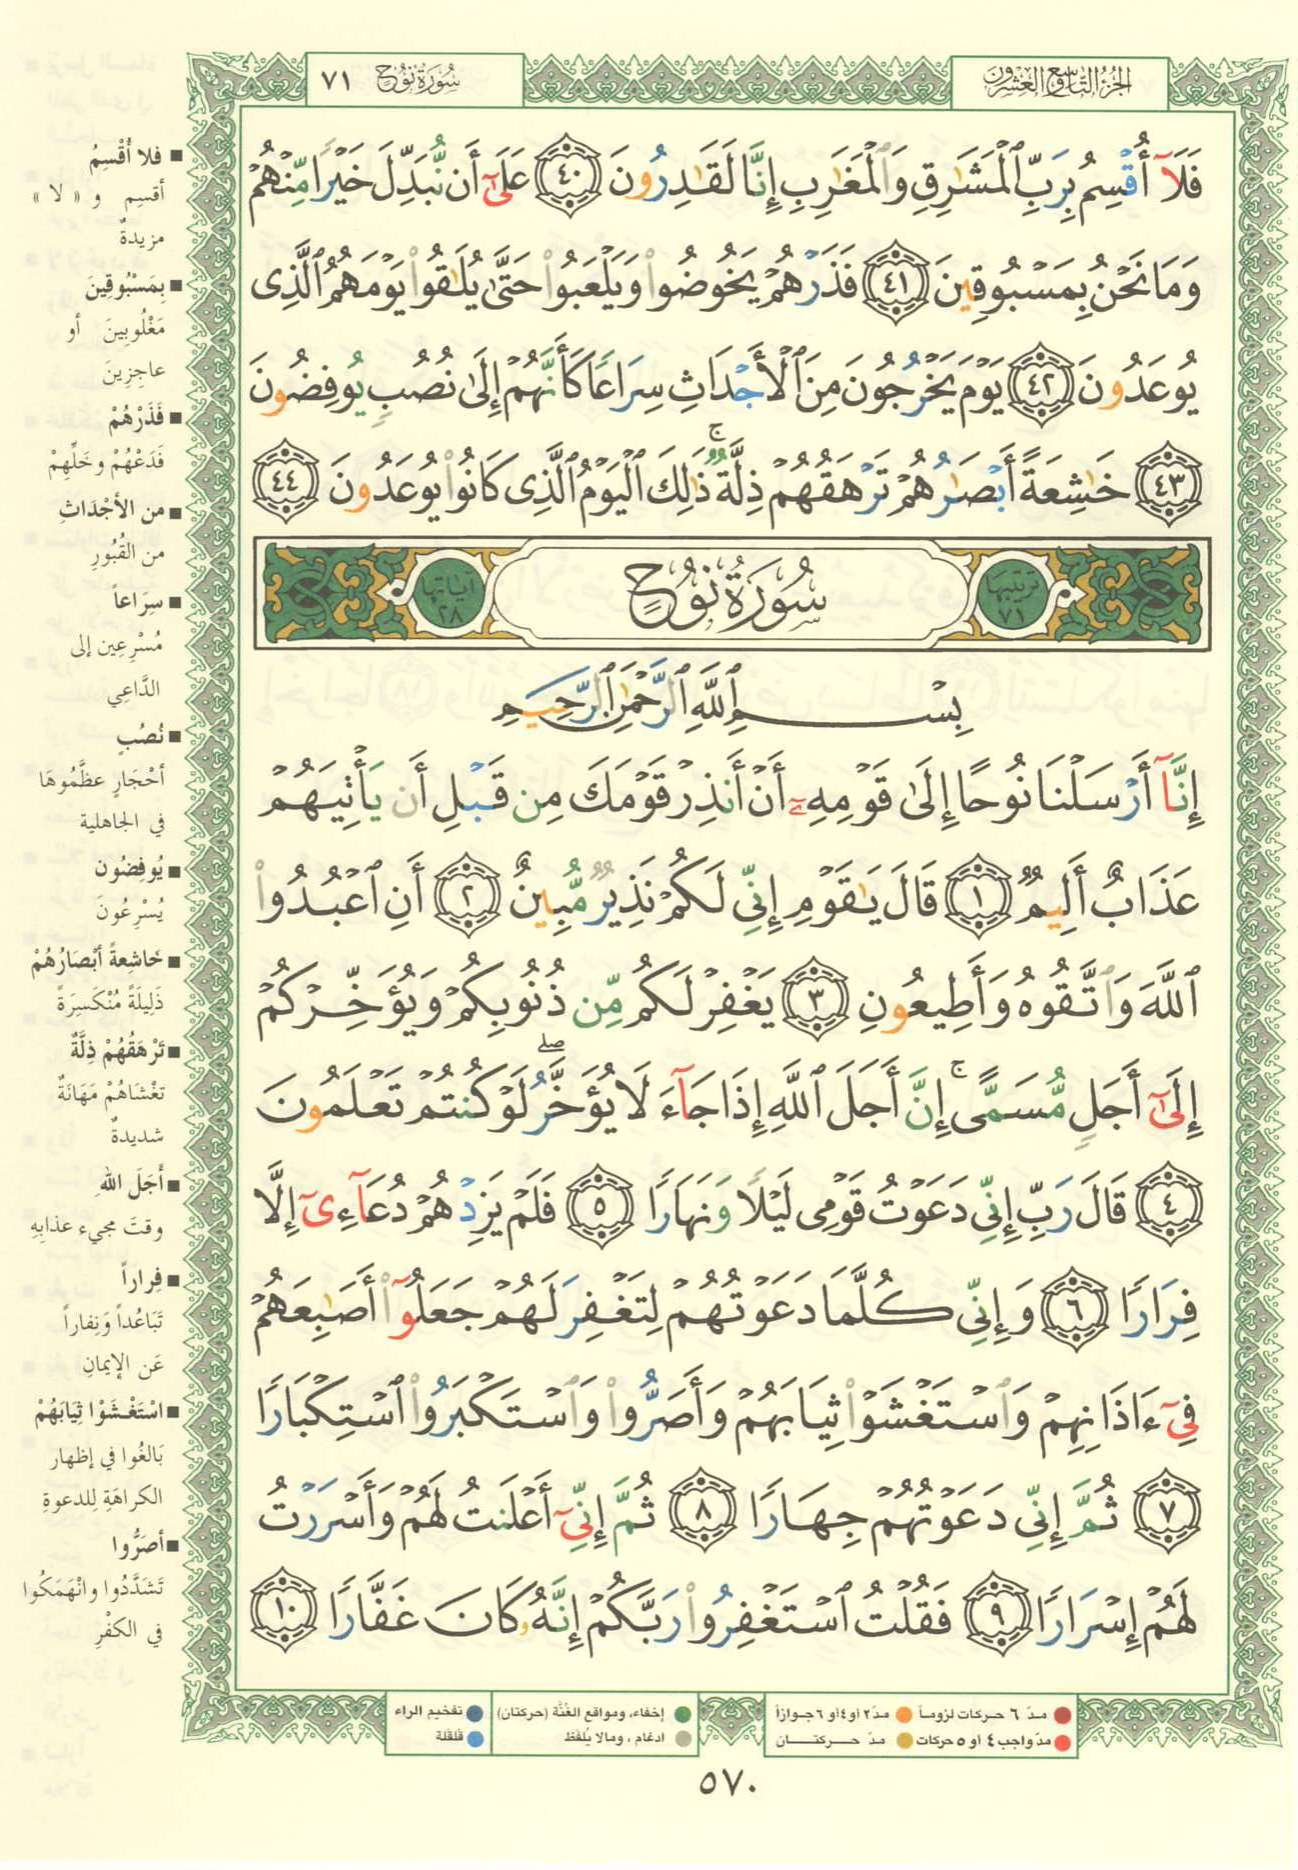 الجزء التاسع والعشرون
سورة نوح ٧١
فَلَآ أُقْسِمُ بِرَبِّ ٱلْمَشَٰرِقِ وَٱلْمَغَٰرِبِ إِنَّا لَقَٰدِرُونَ ٤٠ عَلَىٰٓ أَن نُّبَدِّلَ خَيْرًا مِّنْهُمْ
وَمَا نَحْنُ بِمَسْبُوقِينَ ٤١ فَذَرْهُمْ يَخُوضُوا۟ وَيَلْعَبُوا۟ حَتَّىٰ يُلَٰقُوا۟ يَوْمَهُمُ ٱلَّذِى
يُوعَدُونَ ٤٢ يَوْمَ يَخْرُجُونَ مِنَ ٱلْأَجْدَاثِ سِرَاعًا كَأَنَّهُمْ إِلَىٰ نُصُبٍ يُوفِضُونَ
٤٣ خَٰشِعَةً أَبْصَٰرُهُمْ تَرْهَقُهُمْ ذِلَّةٌ ۚ ذَٰلِكَ ٱلْيَوْمُ ٱلَّذِى كَانُوا۟ يُوعَدُونَ ٤٤
ترتيبها ٧١ سُورَةُ نُوحٍ آياتها ٢٨
بِسْمِ ٱللَّهِ ٱلرَّحْمَٰنِ ٱلرَّحِيمِ
إِنَّآ أَرْسَلْنَا نُوحًا إِلَىٰ قَوْمِهِۦٓ أَنْ أَنذِرْ قَوْمَكَ مِن قَبْلِ أَن يَأْتِيَهُمْ
عَذَابٌ أَلِيمٌ ١ قَالَ يَٰقَوْمِ إِنِّى لَكُمْ نَذِيرٌ مُّبِينٌ ٢ أَنِ ٱعْبُدُوا۟
ٱللَّهَ وَٱتَّقُوهُ وَأَطِيعُونِ ٣ يَغْفِرْ لَكُم مِّن ذُنُوبِكُمْ وَيُؤَخِّرْكُمْ
إِلَىٰٓ أَجَلٍ مُّسَمًّى ۚ إِنَّ أَجَلَ ٱللَّهِ إِذَا جَآءَ لَا يُؤَخَّرُ ۖ لَوْ كُنتُمْ تَعْلَمُونَ
٤ قَالَ رَبِّ إِنِّى دَعَوْتُ قَوْمِى لَيْلًا وَنَهَارًا ٥ فَلَمْ يَزِدْهُمْ دُعَآءِىٓ إِلَّا
فِرَارًا ٦ وَإِنِّى كُلَّمَا دَعَوْتُهُمْ لِتَغْفِرَ لَهُمْ جَعَلُوٓا۟ أَصَٰبِعَهُمْ
فِىٓ ءَاذَانِهِمْ وَٱسْتَغْشَوْا۟ ثِيَابَهُمْ وَأَصَرُّوا۟ وَٱسْتَكْبَرُوا۟ ٱسْتِكْبَارًا
٧ ثُمَّ إِنِّى دَعَوْتُهُمْ جِهَارًا ٨ ثُمَّ إِنِّىٓ أَعْلَنتُ لَهُمْ وَأَسْرَرْتُ
لَهُمْ إِسْرَارًا ٩ فَقُلْتُ ٱسْتَغْفِرُوا۟ رَبَّكُمْ إِنَّهُۥ كَانَ غَفَّارًا ١٠
■ فلا أُقْسِمُ
أقسِم و « لا »
مزيدةٌ
■ بِمَسْبُوقِينَ
مَغْلُوبِينَ أو
عاجِزِينَ
■ فَذَرْهُمْ
فَدَعْهُمْ وخَلِّهِمْ
■ من الأجْدَاثِ
من القُبُورِ
■ سِرَاعاً
مُسْرِعِين إلى
الدَّاعِي
■ نُصُبٍ
أحْجَارٍ عظَّمُوهَا
في الجاهلية
■ يُوفِضُون
يُسْرِعُونَ
■ خَاشِعةً أبْصَارُهُمْ
ذَلِيلَةً مُنْكَسِرَةً
■ تَرْهَقُهُمْ ذِلَّةٌ
تغْشَاهُمْ مَهَانَةٌ
شديدةٌ
■ أَجَلَ اللهِ
وقتَ مجيء عذابِهِ
■ فِراراً
تَبَاعُداً وَنِفاراً
عَن الإيمانِ
■ اسْتَغْشَوْا ثِيَابَهُمْ
بَالغُوا في إظهار
الكراهَةِ لِلدعوةِ
■ أصَرُّوا
تَشَدَّدُوا وانْهَمَكُوا
في الكفْرِ
مدّ ٦ حركات لزوماً مدّ ٢ أو ٤ أو ٦ جوازاً
مدّ واجب ٤ أو ٥ حركات مدّ حركتان
إخفاء، ومواقع الغُنَّة (حركتان) تفخيم الراء
ادغام ، ومالا يُلفَظ قلقلة
٥٧٠